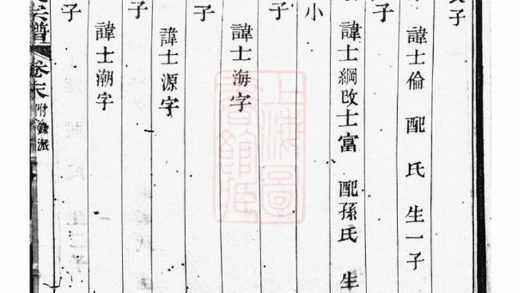 子
諱士倫 配 氏 生一子
子
諱士綱改士富 配孫氏 生
小
子
諱士海字
子
諱士源字
諱士潮字
子
宗譜 卷末 附錄派
上海圖
書館藏